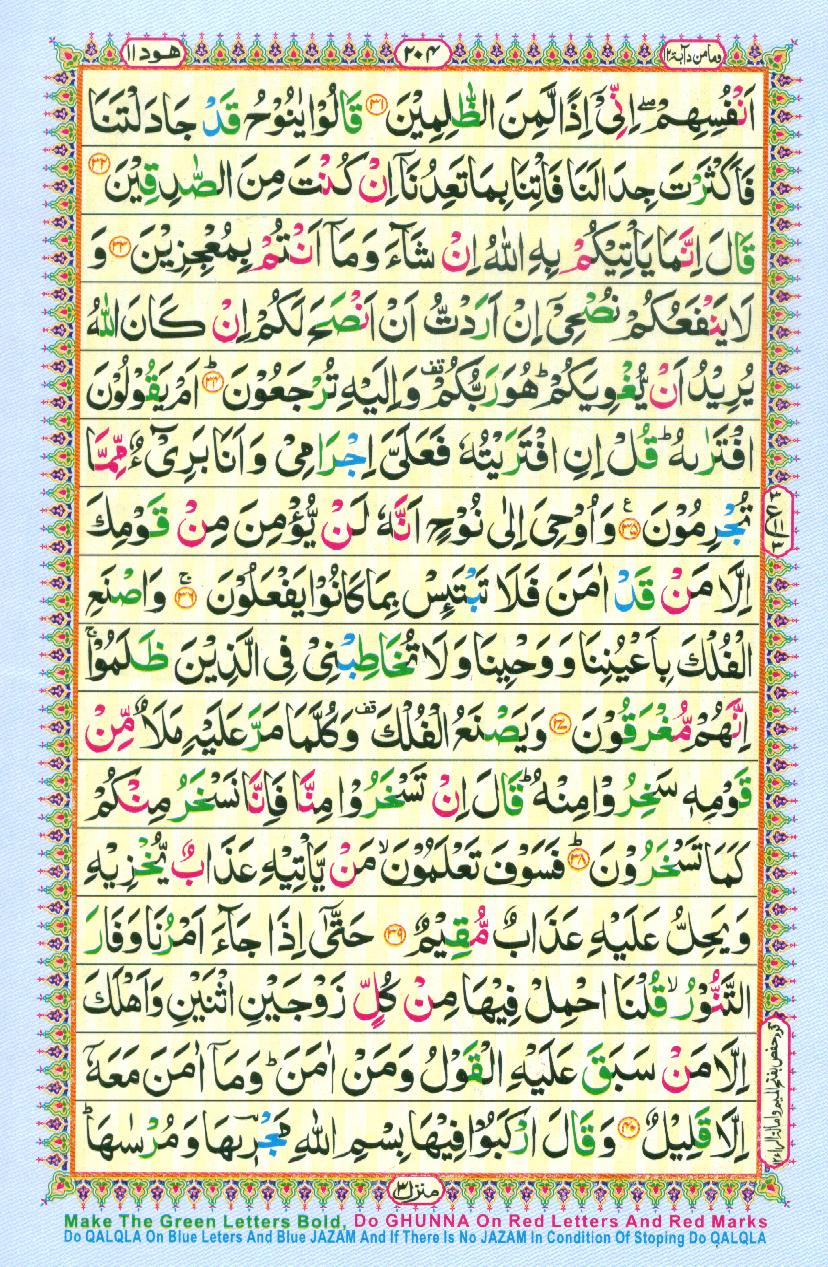 وما من دآبة ١٢
٢٠٤
هود ١١
اَنْفُسِهِمْ ۖۚ اِنِّیْۤ اِذًا لَّمِنَ الظّٰلِمِیْنَ ﴿۳۱﴾ قَالُوْا یٰنُوْحُ قَدْ جَادَلْتَنَا
فَاَكْثَرْتَ جِدَالَنَا فَاْتِنَا بِمَا تَعِدُنَاۤ اِنْ كُنْتَ مِنَ الصّٰدِقِیْنَ ﴿۳۲﴾
قَالَ اِنَّمَا یَاْتِیْكُمْ بِهِ اللّٰهُ اِنْ شَآءَ وَ مَاۤ اَنْتُمْ بِمُعْجِزِیْنَ ﴿۳۳﴾ وَ
لَا یَنْفَعُكُمْ نُصْحِیْۤ اِنْ اَرَدْتُّ اَنْ اَنْصَحَ لَكُمْ اِنْ كَانَ اللّٰهُ
یُرِیْدُ اَنْ یُّغْوِیَكُمْ ؕ هُوَ رَبُّكُمْ ۫ وَ اِلَیْهِ تُرْجَعُوْنَ ﴿۳۴﴾ؕ اَمْ یَقُوْلُوْنَ
افْتَرٰىهُ ؕ قُلْ اِنِ افْتَرَیْتُهٗ فَعَلَیَّ اِجْرَامِیْ وَ اَنَا بَرِیْٓءٌ مِّمَّا
تُجْرِمُوْنَ ﴿۳۵﴾ ع وَ اُوْحِیَ اِلٰى نُوْحٍ اَنَّهٗ لَنْ یُّؤْمِنَ مِنْ قَوْمِكَ
اِلَّا مَنْ قَدْ اٰمَنَ فَلَا تَبْتَىِٕسْ بِمَا كَانُوْا یَفْعَلُوْنَ ﴿۳۶﴾ۚ وَ اصْنَعِ
الْفُلْكَ بِاَعْیُنِنَا وَ وَحْیِنَا وَ لَا تُخَاطِبْنِیْ فِی الَّذِیْنَ ظَلَمُوْا ۚ
اِنَّهُمْ مُّغْرَقُوْنَ ﴿۳۷﴾ وَ یَصْنَعُ الْفُلْكَ قف وَ كُلَّمَا مَرَّ عَلَیْهِ مَلَاٌ مِّنْ
قَوْمِهٖ سَخِرُوْا مِنْهُ ؕ قَالَ اِنْ تَسْخَرُوْا مِنَّا فَاِنَّا نَسْخَرُ مِنْكُمْ
كَمَا تَسْخَرُوْنَ ﴿۳۸﴾ؕ فَسَوْفَ تَعْلَمُوْنَ ۙ مَنْ یَّاْتِیْهِ عَذَابٌ یُّخْزِیْهِ
وَ یَحِلُّ عَلَیْهِ عَذَابٌ مُّقِیْمٌ ﴿۳۹﴾ حَتّٰۤى اِذَا جَآءَ اَمْرُنَا وَ فَارَ
التَّنُّوْرُ ۙ قُلْنَا احْمِلْ فِیْهَا مِنْ كُلٍّ زَوْجَیْنِ اثْنَیْنِ وَ اَهْلَكَ
اِلَّا مَنْ سَبَقَ عَلَیْهِ الْقَوْلُ وَ مَنْ اٰمَنَ ؕ وَ مَاۤ اٰمَنَ مَعَهٗۤ
اِلَّا قَلِیْلٌ ﴿۴۰﴾ وَ قَالَ ارْكَبُوْا فِیْهَا بِسْمِ اللّٰهِ مَجْؔرٖىهَا وَ مُرْسٰىهَا ؕ
منزل ٣
Make The Green Letters Bold, Do GHUNNA On Red Letters And Red Marks
Do QALQLA On Blue Leters And Blue JAZAM And If There Is No JAZAM In Condition Of Stoping Do QALQLA